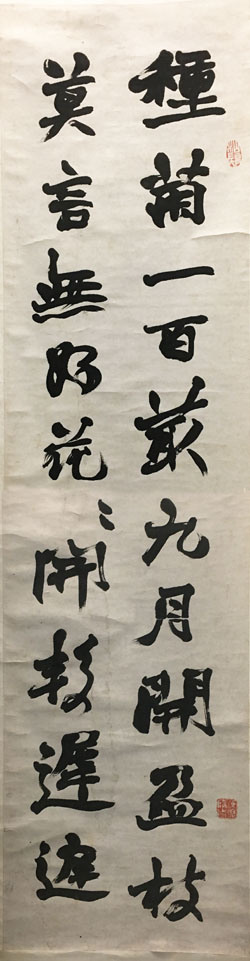 種菊一百叢九月開盈枝
莫言無好花〻開較遲遲